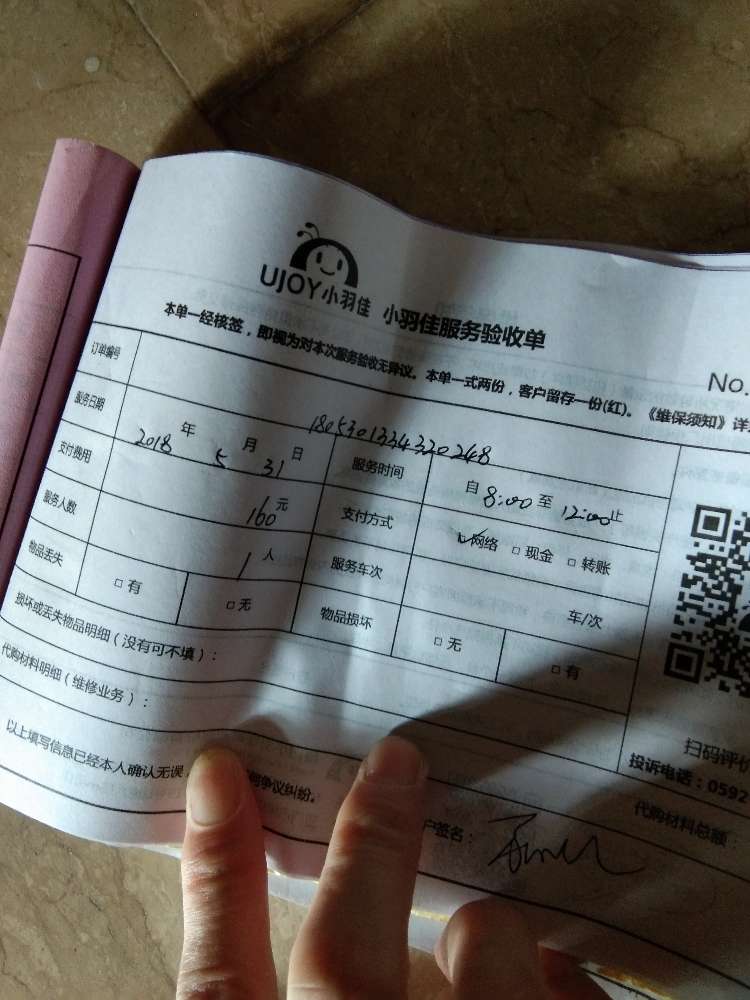 UJOY小羽佳 小羽佳服务验收单
本单一经核签，即视为对本次服务验收无异议。本单一式两份，客户留存一份(红)。《维保须知》详
No.
订单编号 1805301334320248
服务日期 2018 年 5 月 31 日 服务时间 自 8:00 至 12:00 止
支付费用 160 元 支付方式 ☑网络 □现金 □转账
服务人数 1 人 服务车次 车/次
物品丢失 □有 □无 物品损坏 □无 □有
损坏或丢失物品明细（没有可不填）：
代购材料明细（维修业务）：
扫码评价
投诉电话：0592
代购材料总额
以上填写信息已经本人确认无误，
争议纠纷。
户签名：